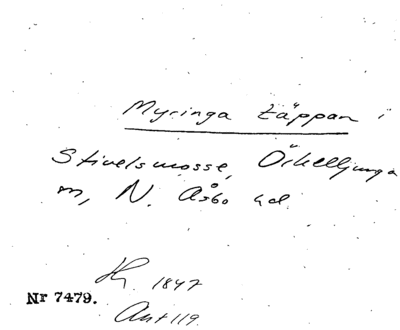 Myringa täppan i
Stivelsmosse, Örkelljunga
sn, N. Åsbo hd.
1847
Nr 7479.
Ant 119.